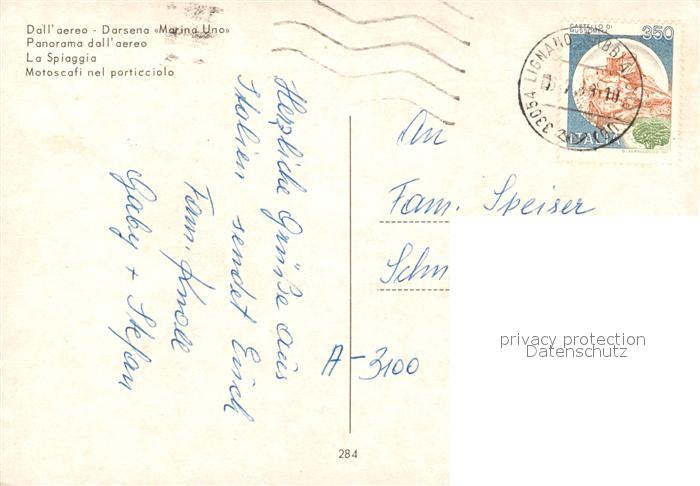 Dall'aereo - Darsena «Marina Uno»
Panorama dall'aereo
La Spiaggia
Motoscafi nel porticciolo
Herzliche Grüße aus
Italien sendet Euch
Fam. Knoll
Gaby + Stefan
CASTELLO DI
MUSSOMELI
350
ITALIA
33054 LIGNANO SABBIADORO (UD)
An
Fam. Speiser
Schm
A-3100
privacy protection
Datenschutz
284